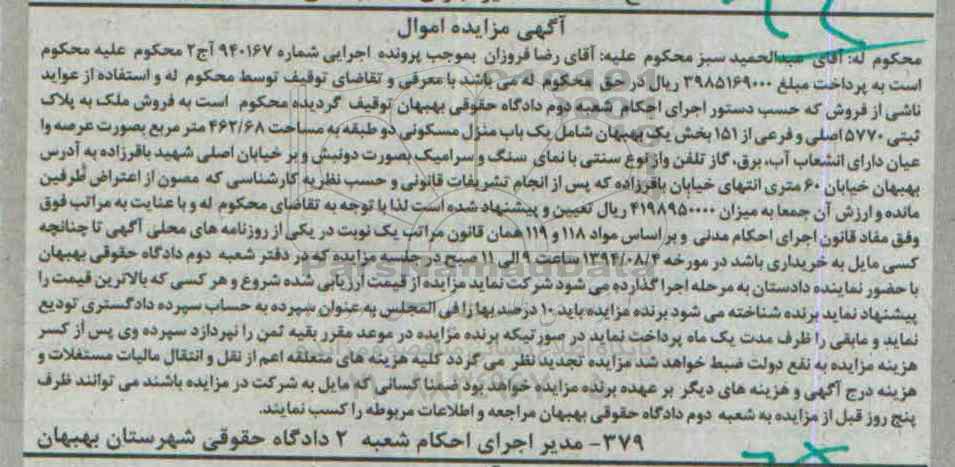 آگهی مزایده اموال
محکوم له: آقای عبدالحمید سبز محکوم علیه: آقای رضا فروزان بموجب پرونده اجرایی شماره ۹۴۰۱۶۷ آج۲ محکوم علیه محکوم
است به پرداخت مبلغ ۳۹۸۵۱۶۹۰۰۰ ریال در حق محکوم له می باشد با معرفی و تقاضای توقیف توسط محکوم له و استفاده از عواید
ناشی از فروش که حسب دستور اجرای احکام شعبه دوم دادگاه حقوقی بهبهان توقیف گردیده محکوم است به فروش ملک به پلاک
ثبتی ۵۷۷۰ اصلی و فرعی از ۱۵۱ بخش یک بهبهان شامل یک باب منزل مسکونی دو طبقه به مساحت ۴۶۲/۶۸ متر مربع بصورت عرصه وا
عیان دارای انشعاب آب، برق، گاز تلفن واز نوع سنتی با نمای سنگ و سرامیک بصورت دونبش و بر خیابان اصلی شهید باقرزاده به آدرس
بهبهان خیابان ۶۰ متری انتهای خیابان باقرزاده که پس از انجام تشریفات قانونی و حسب نظریه کارشناسی که مصون از اعتراض طرفین
مانده و ارزش آن جمعا به میزان ۴۱۹۸۹۵۰۰۰۰ ریال تعیین و پیشنهاد شده است لذا با توجه به تقاضای محکوم له و با عنایت به مراتب فوق
وفق مفاد قانون اجرای احکام مدنی و بر اساس مواد ۱۱۸ و ۱۱۹ همان قانون مراتب یک نوبت در یکی از روزنامه های محلی آگهی تا چنانچه
کسی مایل به خریداری باشد در مورخه ۱۳۹۴/۰۸/۴ ساعت ۹ الی ۱۱ صبح در جلسه مزایده که در دفتر شعبه دوم دادگاه حقوقی بهبهان
با حضور نماینده دادستان به مرحله اجرا گذارده می شود شرکت نماید مزایده از قیمت ارزیابی شده شروع و هر کسی که بالاترین قیمت را
پیشنهاد نماید برنده شناخته می شود برنده مزایده باید ۱۰ درصد بها را فی المجلس به عنوان سپرده به حساب سپرده دادگستری تودیع
نماید و مابقی را ظرف مدت یک ماه پرداخت نماید در صورتیکه برنده مزایده در موعد مقرر بقیه ثمن را نپردازد سپرده وی پس از کسر
هزینه مزایده به نفع دولت ضبط خواهد شد مزایده تجدید نظر می گردد کلیه هزینه های متعلقه اعم از نقل و انتقال مالیات مستغلات و
هزینه درج آگهی و هزینه های دیگر بر عهده برنده مزایده خواهد بود ضمنا کسانی که مایل به شرکت در مزایده باشند می توانند ظرف
پنج روز قبل از مزایده به شعبه دوم دادگاه حقوقی بهبهان مراجعه و اطلاعات مربوطه را کسب نمایند.
۳۷۹- مدیر اجرای احکام شعبه ۲ دادگاه حقوقی شهرستان بهبهان
ParsNamadData